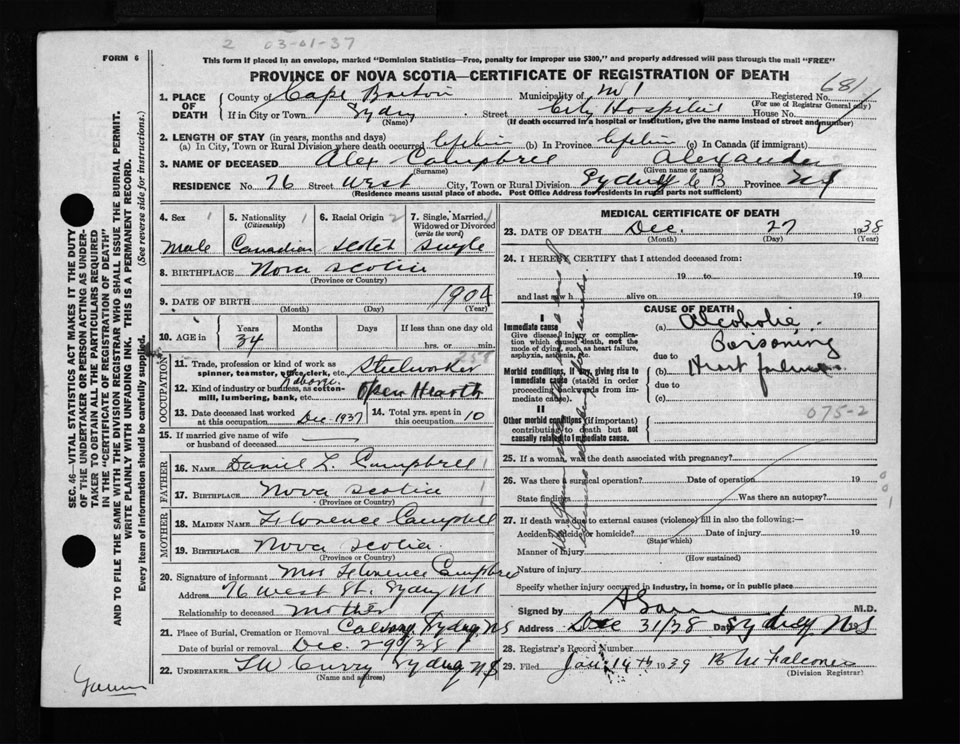 2 03-01-37
FORM 6
This form if placed in an envelope, marked "Dominion Statistics—Free, penalty for improper use $300," and properly addressed will pass through the mail "FREE"
PROVINCE OF NOVA SCOTIA—CERTIFICATE OF REGISTRATION OF DEATH
681
1. PLACE OF DEATH County of Cape Breton Municipality of Registered No.
(For use of Registrar General only)
If in City or Town Sydney Street City Hospital House No.
(Name) (If death occurred in a hospital or institution, give the name instead of street and number)
2. LENGTH OF STAY (in years, months and days)
(a) In City, Town or Rural Division where death occurred lifetime (b) In Province lifetime (c) In Canada (if immigrant)
3. NAME OF DECEASED Alex Campbell Alexander
(Surname) (Given name or names)
RESIDENCE No. 76 Street West City, Town or Rural Division Sydney C B Province NS
(Residence means usual place of abode. Post Office Address for Residents in rural parts not sufficient)
4. Sex 1 5. Nationality 1 6. Racial Origin 2 7. Single, Married, 1
(Citizenship) Widowed or Divorced
(write the word)
Male Canadian Scotch Single
8. BIRTHPLACE Nova Scotia
(Province or Country)
9. DATE OF BIRTH 1904
(Month) (Day) (Year)
10. AGE in Years Months Days If less than one day
34 hrs. or min.
OCCUPATION
11. Trade, profession or kind of work as spinner, teamster, office clerk, etc. Steelworker
12. Kind of industry or business, as cotton-mill, lumbering, bank, etc. Open Hearth
13. Date deceased last worked at this occupation Dec 1937 14. Total yrs. spent in this occupation 10
15. If married give name of wife or husband of deceased
FATHER
16. NAME Daniel L. Campbell
17. BIRTHPLACE Nova Scotia
(Province or Country)
MOTHER
18. MAIDEN NAME Florence Campbell
19. BIRTHPLACE Nova Scotia
(Province or Country)
20. Signature of informant Mrs Florence Campbell
Address 76 West St. Sydney NS
Relationship to deceased Mother
21. Place of Burial, Cremation or Removal Calvary Sydney NS
Date of burial or removal Dec 29/38
22. UNDERTAKER Curry Sydney NS
(Name and address)
MEDICAL CERTIFICATE OF DEATH
23. DATE OF DEATH Dec. 27 1938
(Month) (Day) (Year)
24. I HEREBY CERTIFY that I attended deceased from:
19 to 19
and last saw h alive on 19
CAUSE OF DEATH
I
Immediate cause
Give disease, injury or complication which caused death, not the mode of dying, such as heart failure, asphyxia, asthenia, etc.
(a) Alcoholic Poisoning
due to
Morbid conditions, if any, giving rise to immediate cause (stated in order proceeding backwards from immediate cause).
(b) Heart failure
due to
(c)
II
Other morbid conditions (if important) contributing to death but not causally related to immediate cause.
075-2
25. If a woman, was the death associated with pregnancy?
26. Was there a surgical operation? Date of operation 19
State findings Was there an autopsy?
27. If death was due to external causes (violence) fill in also the following:—
Accident, suicide or homicide? Date of injury 19
(State which)
Manner of injury
(How sustained)
Nature of injury
Specify whether injury occurred in industry, in home, or in public place
Signed by M.D.
Address Dec 31/38 Date Sydney N.S
28. Registrar's Record Number
29. Filed Jan. 14th 1939 Falconer
(Division Registrar)
SEC. 46—VITAL STATISTICS ACT MAKES IT THE DUTY OF THE UNDERTAKER OR PERSON ACTING AS UNDERTAKER TO OBTAIN ALL THE PARTICULARS REQUIRED IN THE "CERTIFICATE OF REGISTRATION OF DEATH"
AND TO FILE THE SAME WITH THE DIVISION REGISTRAR WHO SHALL ISSUE THE BURIAL PERMIT.
WRITE PLAINLY WITH UNFADING INK. THIS IS A PERMANENT RECORD.
Every item of information should be carefully supplied. (See reverse side for instructions.)